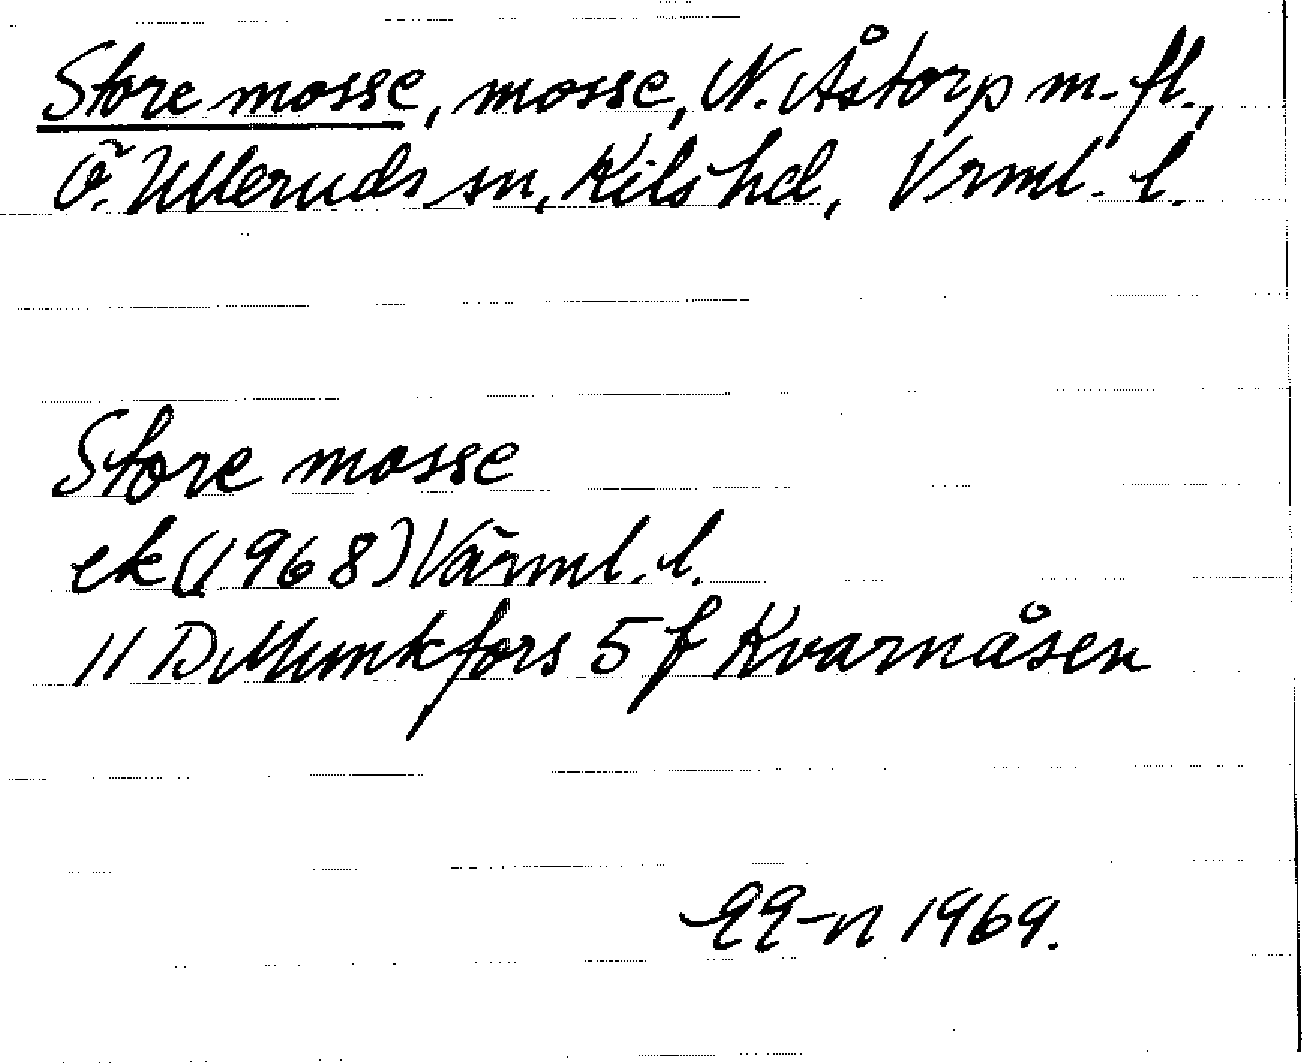 Store mosse, mosse, N. Åstorp m. fl.,
Ö. Ulleruds sn, Kils hd, Vrml. l.
Store mosse
ek (1968) Värml. l.
11 D Munkfors 5 f Kvarnåsen
1969.